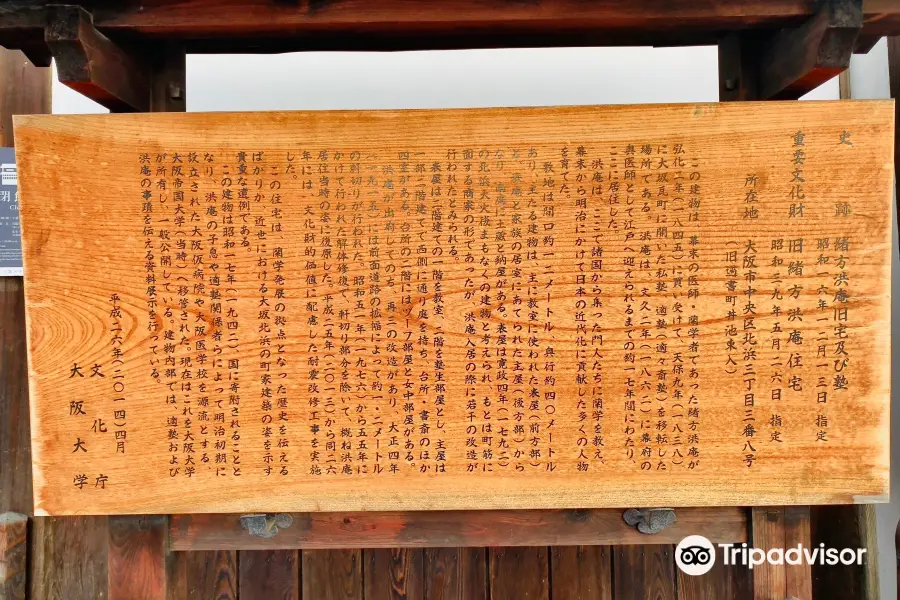 史跡 緒方洪庵旧宅及び塾
昭和一六年一二月一三日 指定
重要文化財 旧緒方洪庵住宅
昭和三九年五月二六日 指定
所在地 大阪市中央区北浜三丁目三番八号
(旧過書町井池東入)
この建物は、幕末の医師・蘭学者であった緒方洪庵が
弘化二年(一八四五)に買い受けて、天保九年(一八三八)
に大坂瓦町に開いた私塾・適塾(適々斎塾)を移転した
場所である。洪庵は、文久二年(一八六二)に幕府の
奥医師として江戸へ迎えられるまでの約一七年間にわたり
ここに居住した。
洪庵は、ここで諸国から集った門人たちに蘭学を教え、
幕末から明治にかけて日本の近代化に貢献した多くの人物
を育てた。
敷地は間口約一二メートル、奥行約四〇メートル
あり、主たる建物は、主に教室に使われた表屋(前方部)
と、洪庵と家族の居室にあてられた主屋(後方部)から
なり、南庭に土蔵と納屋がある。表屋は寛政四年(一七九二)
の北浜大火後まもなくの建物と考えられ、もとは町筋に
面する商家の形であったが、洪庵入居の際に若干の改造が
行われたとみられる。
表屋は二階建ての一階を教室、二階を塾生部屋とし、主屋は
一部二階建てで西側に通り庭を持ち、台所・書斎のほか
四室がある。台所の二階にはヅーフ部屋と女中部屋がある。
洪庵が出府してのちも、再三の改造があり、大正四年
(一九一五)には前面道路の拡幅によって約一・二メートル
の軒切りが行われた。昭和五一年(一九七六)から五五年に
かけて行われた解体修復で、軒切り部分を除いて、概ね洪庵
居住当時の姿に復原した。平成二五年(二〇一三)から同二六
年には、文化財的価値に配慮した耐震改修工事を実施
した。
この住宅は、蘭学発展の拠点となった歴史を伝える
ばかりか、近世における大坂北浜の町家建築の姿を示す
貴重な遺例である。
この建物は昭和一七年(一九四二)国に寄附されることと
なり、洪庵の子息や適塾関係者らによって明治初期に
設立された大阪仮病院や大阪医学校を源流とする
大阪帝国大学(当時)へ移管された。現在はこれを大阪大学
が所有し、一般公開している。建物内部では、適塾および
洪庵の事蹟を伝える資料展示を行っている。
平成二六年(二〇一四)四月
文化庁
大阪大学
Tripadvisor